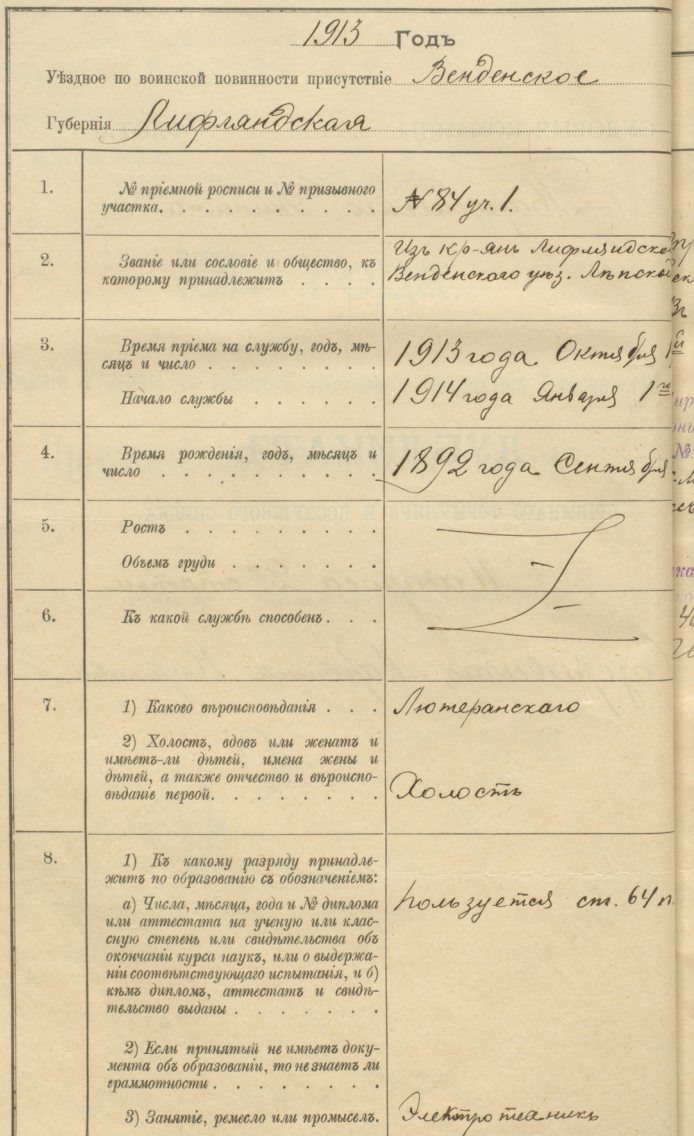 1913 Годъ
Уѣздное по воинской повинности присутствіе Венденское
Губернія Лифляндская
1. № пріемной росписи и № призывного
участка. № 84 уч. 1.
2. Званіе или сословіе и общество, къ
которому принадлежитъ
Изъ кр-янъ Лифляндско
Венденскаго уѣз.
3. Время пріема на службу, годъ, мѣ-
сяцъ и число 1913 года Октября 1
Начало службы 1914 года Января 1го
4. Время рожденія, годъ, мѣсяцъ и
число 1892 года Сентября
5. Ростъ
Объемъ груди
6. Къ какой службѣ способенъ
7. 1) Какого вѣроисповѣданія Лютеранскаго
2) Холостъ, вдовъ или женатъ и
имѣетъ-ли дѣтей, имена жены и
дѣтей, а также отчество и вѣроиспо-
вѣданіе первой. Холостъ
8. 1) Къ какому разряду принадле-
житъ по образованію съ обозначеніемъ:
а) Числа, мѣсяца, года и № диплома
или аттестата на ученую или клас-
сную степень или свидѣтельства объ
окончаніи курса наукъ, или о выдержа-
ніи соотвѣтствующаго испытанія, и б)
кѣмъ дипломъ, аттестатъ и свидѣ-
тельство выданы
Пользуется ст. 64 п.
2) Если принятый не имѣетъ доку-
мента объ образованіи, то не знаетъ ли
грамотности
3) Занятіе, ремесло или промыселъ. Электротехникъ